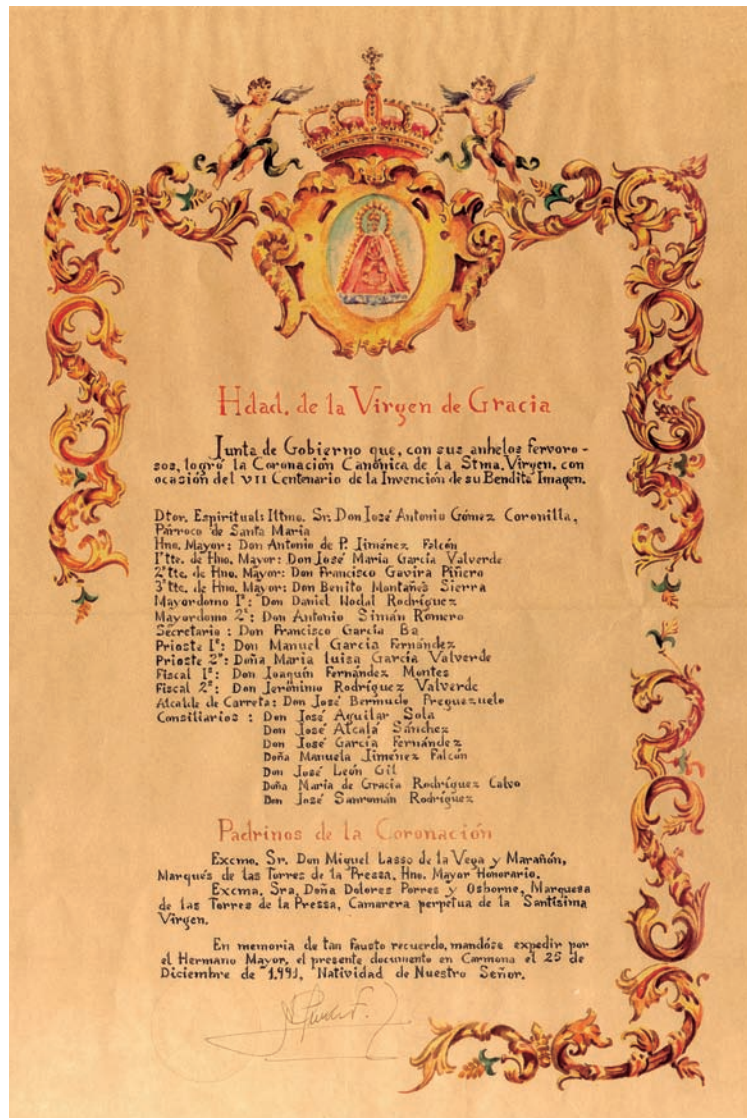 Hdad. de la Virgen de Gracia
Junta de Gobierno que, con sus anhelos fervoro-
sos, logró la Coronación Canónica de la Stma. Virgen, con
ocasión del VII Centenario de la Invención de su Bendita Imagen.
Dtor. Espiritual: Iltmo. Sr. Don José Antonio Gómez Coronilla,
Párroco de Santa María
Hno. Mayor: Don Antonio de P. Jiménez Falcón
1º tte. de Hno. Mayor: Don José María García Valverde
2º tte. de Hno. Mayor: Don Francisco Gavira Piñero
3º tte. de Hno. Mayor: Don Benito Montañés Sierra
Mayordomo 1º: Don Daniel Nodal Rodríguez
Mayordomo 2º: Don Antonio Simán Romero
Secretario : Don Francisco García Ba
Prioste 1º: Don Manuel García Fernández
Prioste 2º: Doña María Luisa García Valverde
Fiscal 1º: Don Joaquín Fernández Montes
Fiscal 2º: Don Jerónimo Rodríguez Valverde
Alcalde de Carreta: Don José Bermudo Preguezuelo
Consiliarios : Don José Aguilar Sola
Don José Alcalá Sánchez
Don José García Fernández
Doña Manuela Jiménez Falcón
Don José León Gil
Doña María de Gracia Rodríguez Calvo
Don José Sanromán Rodríguez
Padrinos de la Coronación
Excmo. Sr. Don Miguel Lasso de la Vega y Marañón,
Marqués de las Torres de la Pressa, Hno. Mayor Honorario.
Excma. Sra. Doña Dolores Porres y Osborne, Marquesa
de las Torres de la Pressa, Camarera perpetua de la Santísima
Virgen.
En memoria de tan fausto recuerdo, mandóse expedir por
el Hermano Mayor, el presente documento en Carmona el 25 de
Diciembre de 1.991, Natividad de Nuestro Señor.